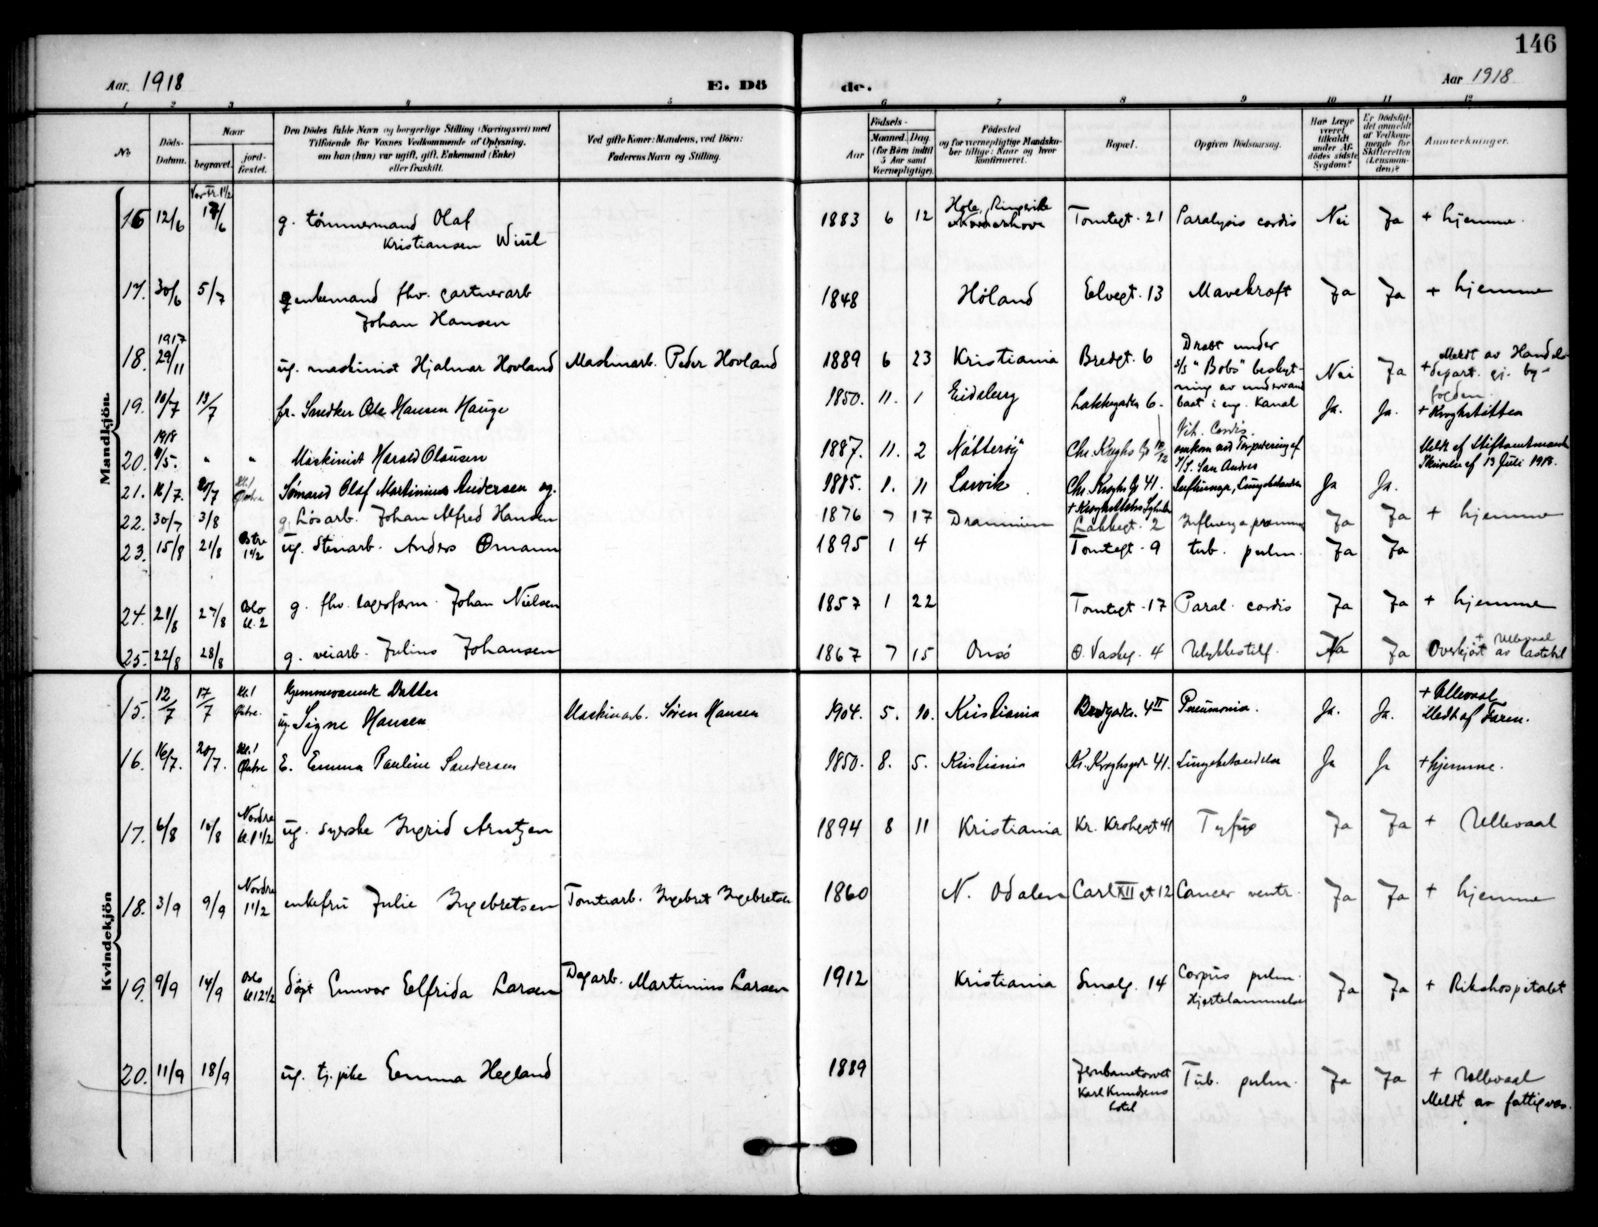 146
Aar 1918 E. Dö de. Aar 1918
1 2 3 4 5 6 7 8 9 10 11 12
No. Döds-Datum. Naar begravet. jord-fæstet. Den Dödes fulde Navn og borgerlige Stilling (Næringsvei) med Tilföiende for Voxnes Vedkommende af Oplysning, om han (hun) var ugift, gift, Enkemand (Enke) eller fraskilt. Ved gifte Koner: Mandens, ved Börn: Faderens Navn og Stilling. Födsels- Aar Maaned, Dag (for Börn indtil 5 Aar samt Værnepligtige). Födested og for værnepligtige Mandskaber tillige: Naar og hvor konfirmeret. Bopæl. Opgiven Dödsaarsag. Har Læge været tilkaldt under Afdödes sidste Sygdom? Er Dödsfaldet anmeldt af Vedkommende for Skifteretten (Lensmanden)? Anmerkninger.
Mandkjön.
16 12/6 17/6 g. tömmermand Olaf Kristiansen Wiul 1883 6 12 Hole, Ringerike Tomtegt. 21 Paralysis cordis Nei Ja + hjemme.
17. 30/6 5/7 enkemand fhv. gartnerarb Johan Hansen 1848 Höland Eelvegt. 13 Mavekræft Ja Ja + hjemme
18. 1917 29/11 ug. maskinist Hjalmar Hovland Maskinarb. Peder Hovland 1889 6 23 Kristiania Bredgt. 6 Dræbt under s/s "Bob's" beskytning av undervandsbaat i eng. Kanal Nei Ja Meldt av Handels depart. gj. by-fogden.
19. 10/7 13/7 fr. Snedker Ole Hansen Hauge 1850. 11. 1 Eidsberg Lakkegaten 6. Vit. Cordis. Ja. Ja. + Kroghstötten
20. 1918 /5. " " Maskinist Harald Olausen 1887. 11. 2 Nötteröy Chr. Kroghs G omkom ved Torpedering af S/S. San Andres Meldt af Stiftamtmanden Skrivelse af 13 Juli 1918.
21. 16/7. 20/7 Kl. 1 Östre Sömand Olaf Martinius Andersen ug. 1885. 1. 11 Larvik Chr. Kroghs G 41. Lungebetændelse Ja Ja.
22. 30/7 3/8 g. Lösarb. Johan Alfred Hansen 1876 7 17 Drammen Lakkegt. 2 Influenza pneumon Ja Ja + hjemme
23. 15/8 21/8 Östre 1 1/2 ug. Stenarb. Anders Ömann 1895 1 4 Tomtegt. 9 tub. pulm. Ja Ja
24. 21/8 27/8 Oslo kl. 2 g. fhv. lagerform. Johan Nielsen 1857 1 22 Tomtegt. 17 Paral. cordis Ja Ja + hjemme
25. 22/8 28/8 g. veiarb. Julius Johansen 1867 7 15 Onsö Ö. Vaskeg. 4 Ulykkestilf. Ja + Ullevaal Overkjört av lastebil
Kvindekjön
15. 12/7 17/7 kl. 1 Östre. Hjemmeværende Datter ug Signe Hansen Maskinarb. Sören Hansen 1904. 5. 10. Kristiania Bredgaden. 4 II Pneumonia. Ja. Ja. + Ullevaal Meldt af Faren.
16. 16/7. 20/7. Kl. 1 Östre E. Emma Pauline Sandersen 1850. 8. 5. Kristiania Kr. Kroghsgt 41. Lungebetændelse Ja Ja + hjemme.
17. 6/8 10/8 Nordre kl. 1 1/2 ug. syerske Ingrid Arntzen 1894 8 11 Kristiania Kr. Kroghsgt 41 Tyfus Ja Ja + Ullevaal
18. 3/9 9/9 Nordre 1 1/2 enkefru Julie Ingebretsen Tomtearb. Ingebret Ingebretsen 1860 N. Odalen Carl XII gt 12 Cancer ventr. Ja Ja + hjemme
19. 9/9 14/9 Oslo kl 12 1/2 döpt Gunvor Elfrida Larsen Dagarb. Martinius Larsen 1912 Kristiania Smalg. 14 Corpus pulm. Hjertelammelse Ja Ja + Rikshospitalet
20. 11/9 18/9 ug. tj. pike Emma Hegland 1889 Jernbanetorvet Karl Knudsens hotel Tub. pulm. Ja Ja + Ullevaal Meldt av fattigvæs.